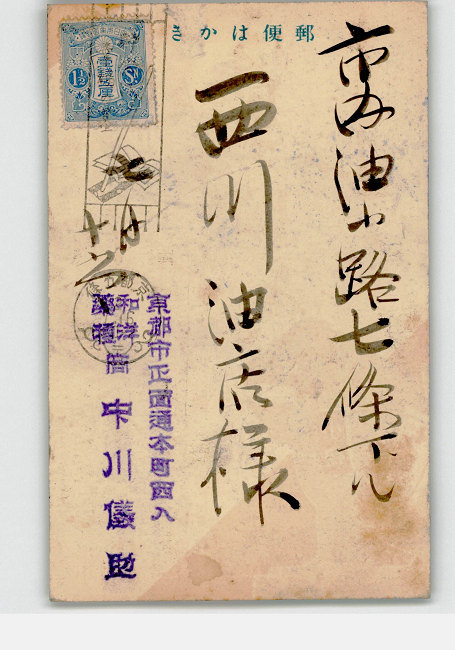 郵便はかき
市内油小路七條下ル
西川油店様
1½ Sn
壹錢五厘
七月
十八日
京都市正面通本町西入
和洋
藥種商
中川儀助